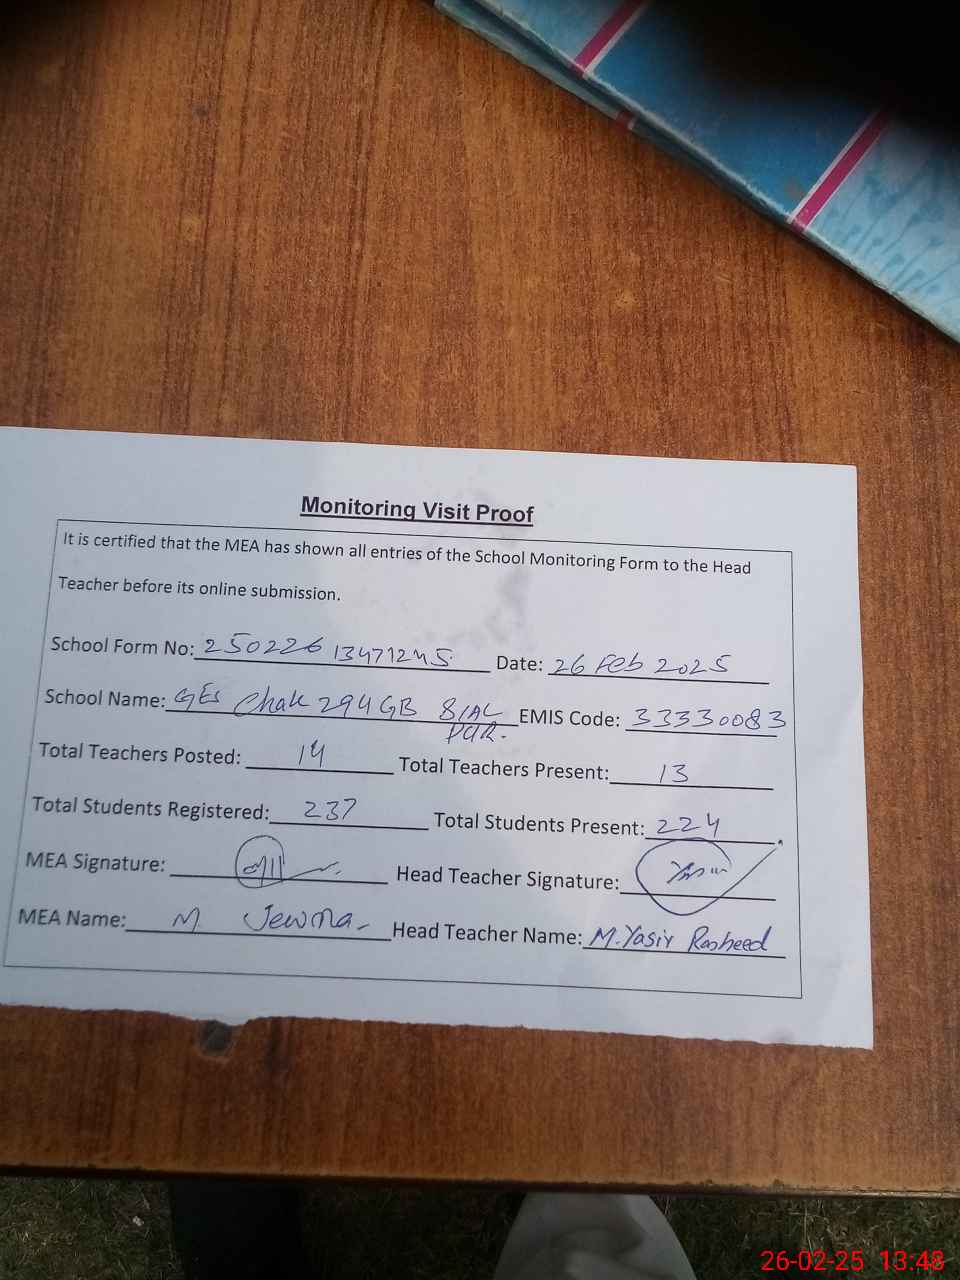 Monitoring Visit Proof
It is certified that the MEA has shown all entries of the School Monitoring Form to the Head
Teacher before its online submission.
School Form No: 25022613471245 Date: 26 Feb 2025
School Name: GES Chak 294 GB SIAL EMIS Code: 33330083
PUR.
Total Teachers Posted: 14 Total Teachers Present: 13
Total Students Registered: 237 Total Students Present: 224
MEA Signature: Head Teacher Signature: Yasir
MEA Name: M. Head Teacher Name: M. Yasir Rasheed
26-02-25 13:48